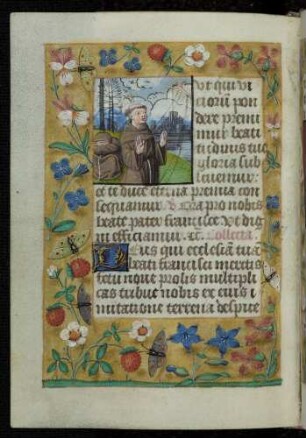 ut qui vi
ciorū pon
dere premi
mur beati
tudinis tue
gloria sub
leuemur:
et te duce eterna premia con
sequamur. Ora pro nobis
beate pater francisce. Vt dig
ni efficiamur. ꝛc. Collecta.
Deus qui ecclesiam tuā
beati francisci meritis
fetu noue prolis multipli
cas tribue nobis ex eius i
mitatione terrena despice